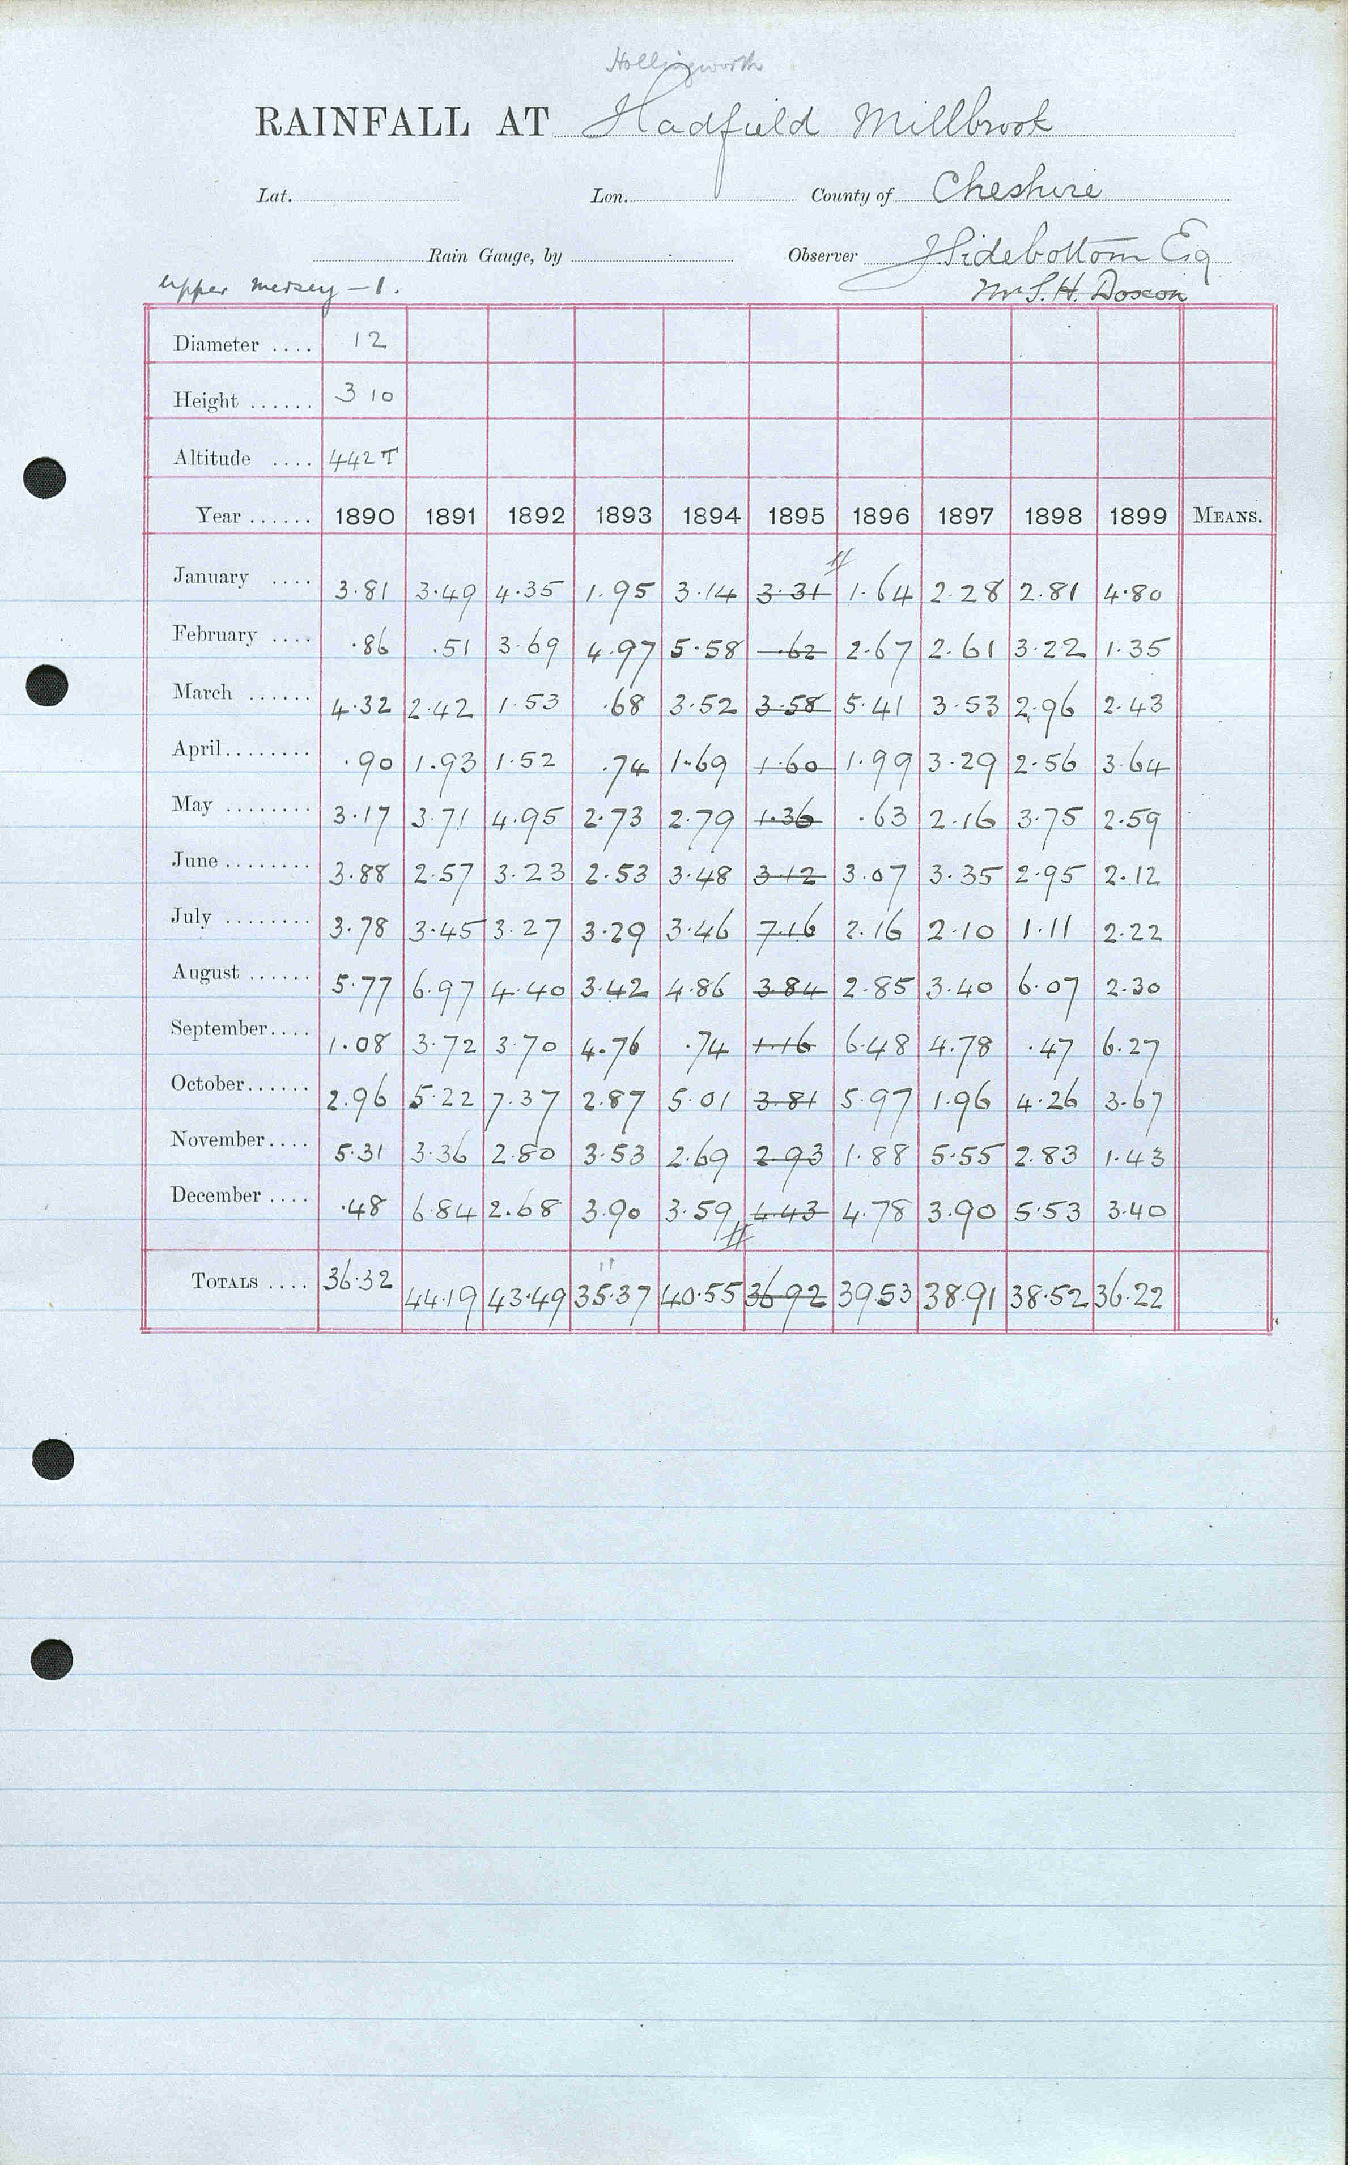 Hollingworth
RAINFALL AT Hadfield Millbrook
Lat. Lon. County of Cheshire
Rain Gauge, by Observer J Sidebottom Esq
Upper Mersey – 1. Mr S. H. Doxon
Diameter .... 12
Height ...... 3 10
Altitude .... 442 T
Year ...... 1890 1891 1892 1893 1894 1895 1896 1897 1898 1899 MEANS.
January .... 3.81 3.49 4.35 1.95 3.14 3.31 1.64 2.28 2.81 4.80
February .... .86 .51 3.69 4.97 5.58 .62 2.67 2.61 3.22 1.35
March ...... 4.32 2.42 1.53 .68 3.52 3.58 5.41 3.53 2.96 2.43
April ........ .90 1.93 1.52 .74 1.69 1.60 1.99 3.29 2.56 3.64
May ........ 3.17 3.71 4.95 2.73 2.79 1.36 .63 2.16 3.75 2.59
June ........ 3.88 2.57 3.23 2.53 3.48 3.12 3.07 3.35 2.95 2.12
July ........ 3.78 3.45 3.27 3.29 3.46 7.16 2.16 2.10 1.11 2.22
August ...... 5.77 6.97 4.40 3.42 4.86 3.84 2.85 3.40 6.07 2.30
September .... 1.08 3.72 3.70 4.76 .74 1.16 6.48 4.78 .47 6.27
October ...... 2.96 5.22 7.37 2.87 5.01 3.81 5.97 1.96 4.26 3.67
November .... 5.31 3.36 2.80 3.53 2.69 2.93 1.88 5.55 2.83 1.43
December .... .48 6.84 2.68 3.90 3.59 4.43 4.78 3.90 5.53 3.40
TOTALS .... 36.32 44.19 43.49 35.37 40.55 36.92 39.53 38.91 38.52 36.22